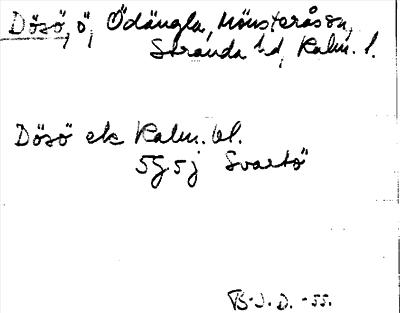 Dösö, ö, Ödängla, Mönsterås sn,
Stranda hd, Kalm. l.
Dösö ek Kalm. bl.
5G5j Svartö
B.J.D. -55.